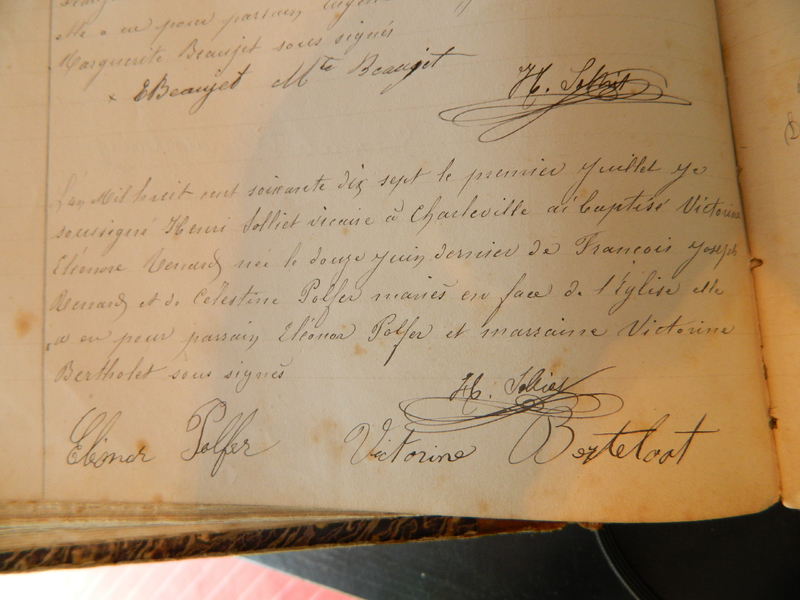 elle a eu pour parrain Eugène
Marguerite Beaujet sous signés
EBeaujet Mte Beaujet
H. Jolliet
L'an Mil huit cent soixante dix sept le premier Juillet Je
soussigné Henri Jolliet vicaire à Charleville ai baptisé Victorine
Eléonore Renard née le douze juin dernier de François Joseph
Renard et de Célestine Polfer mariés en face de l'Église elle
a eu pour parrain Eléonor Polfer et marraine Victorine
Bertholet sous signés
H. Jolliet
Eléonor Polfer Victorine Berteloot